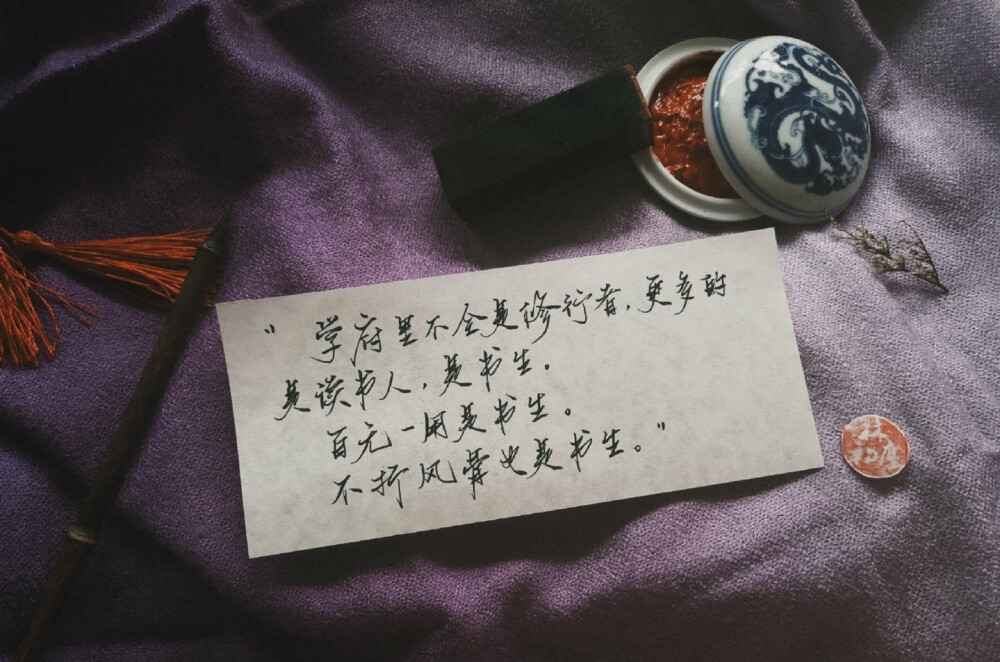 "学府里不全是修行者,更多的
是读书人,是书生。
百无一用是书生。
不折风骨也是书生。"